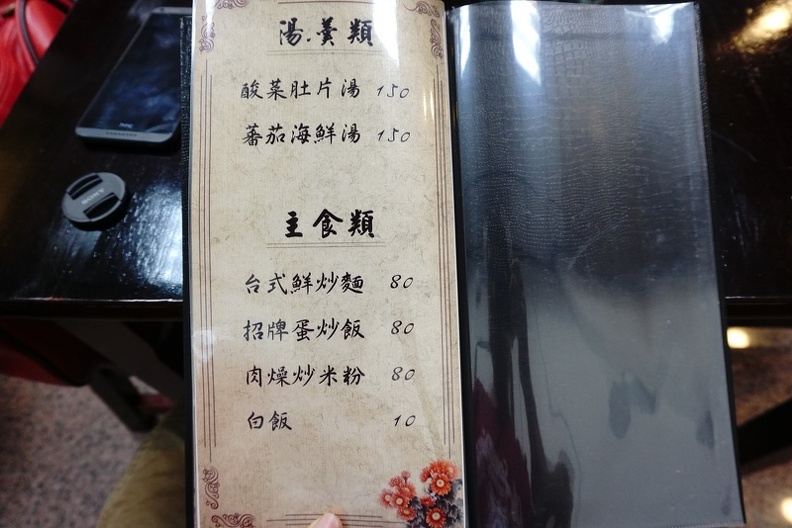 湯.羹類
酸菜肚片湯 150
蕃茄海鮮湯 150
主食類
台式鮮炒麵 80
招牌蛋炒飯 80
肉燥炒米粉 80
白飯 10
hTC
SONY